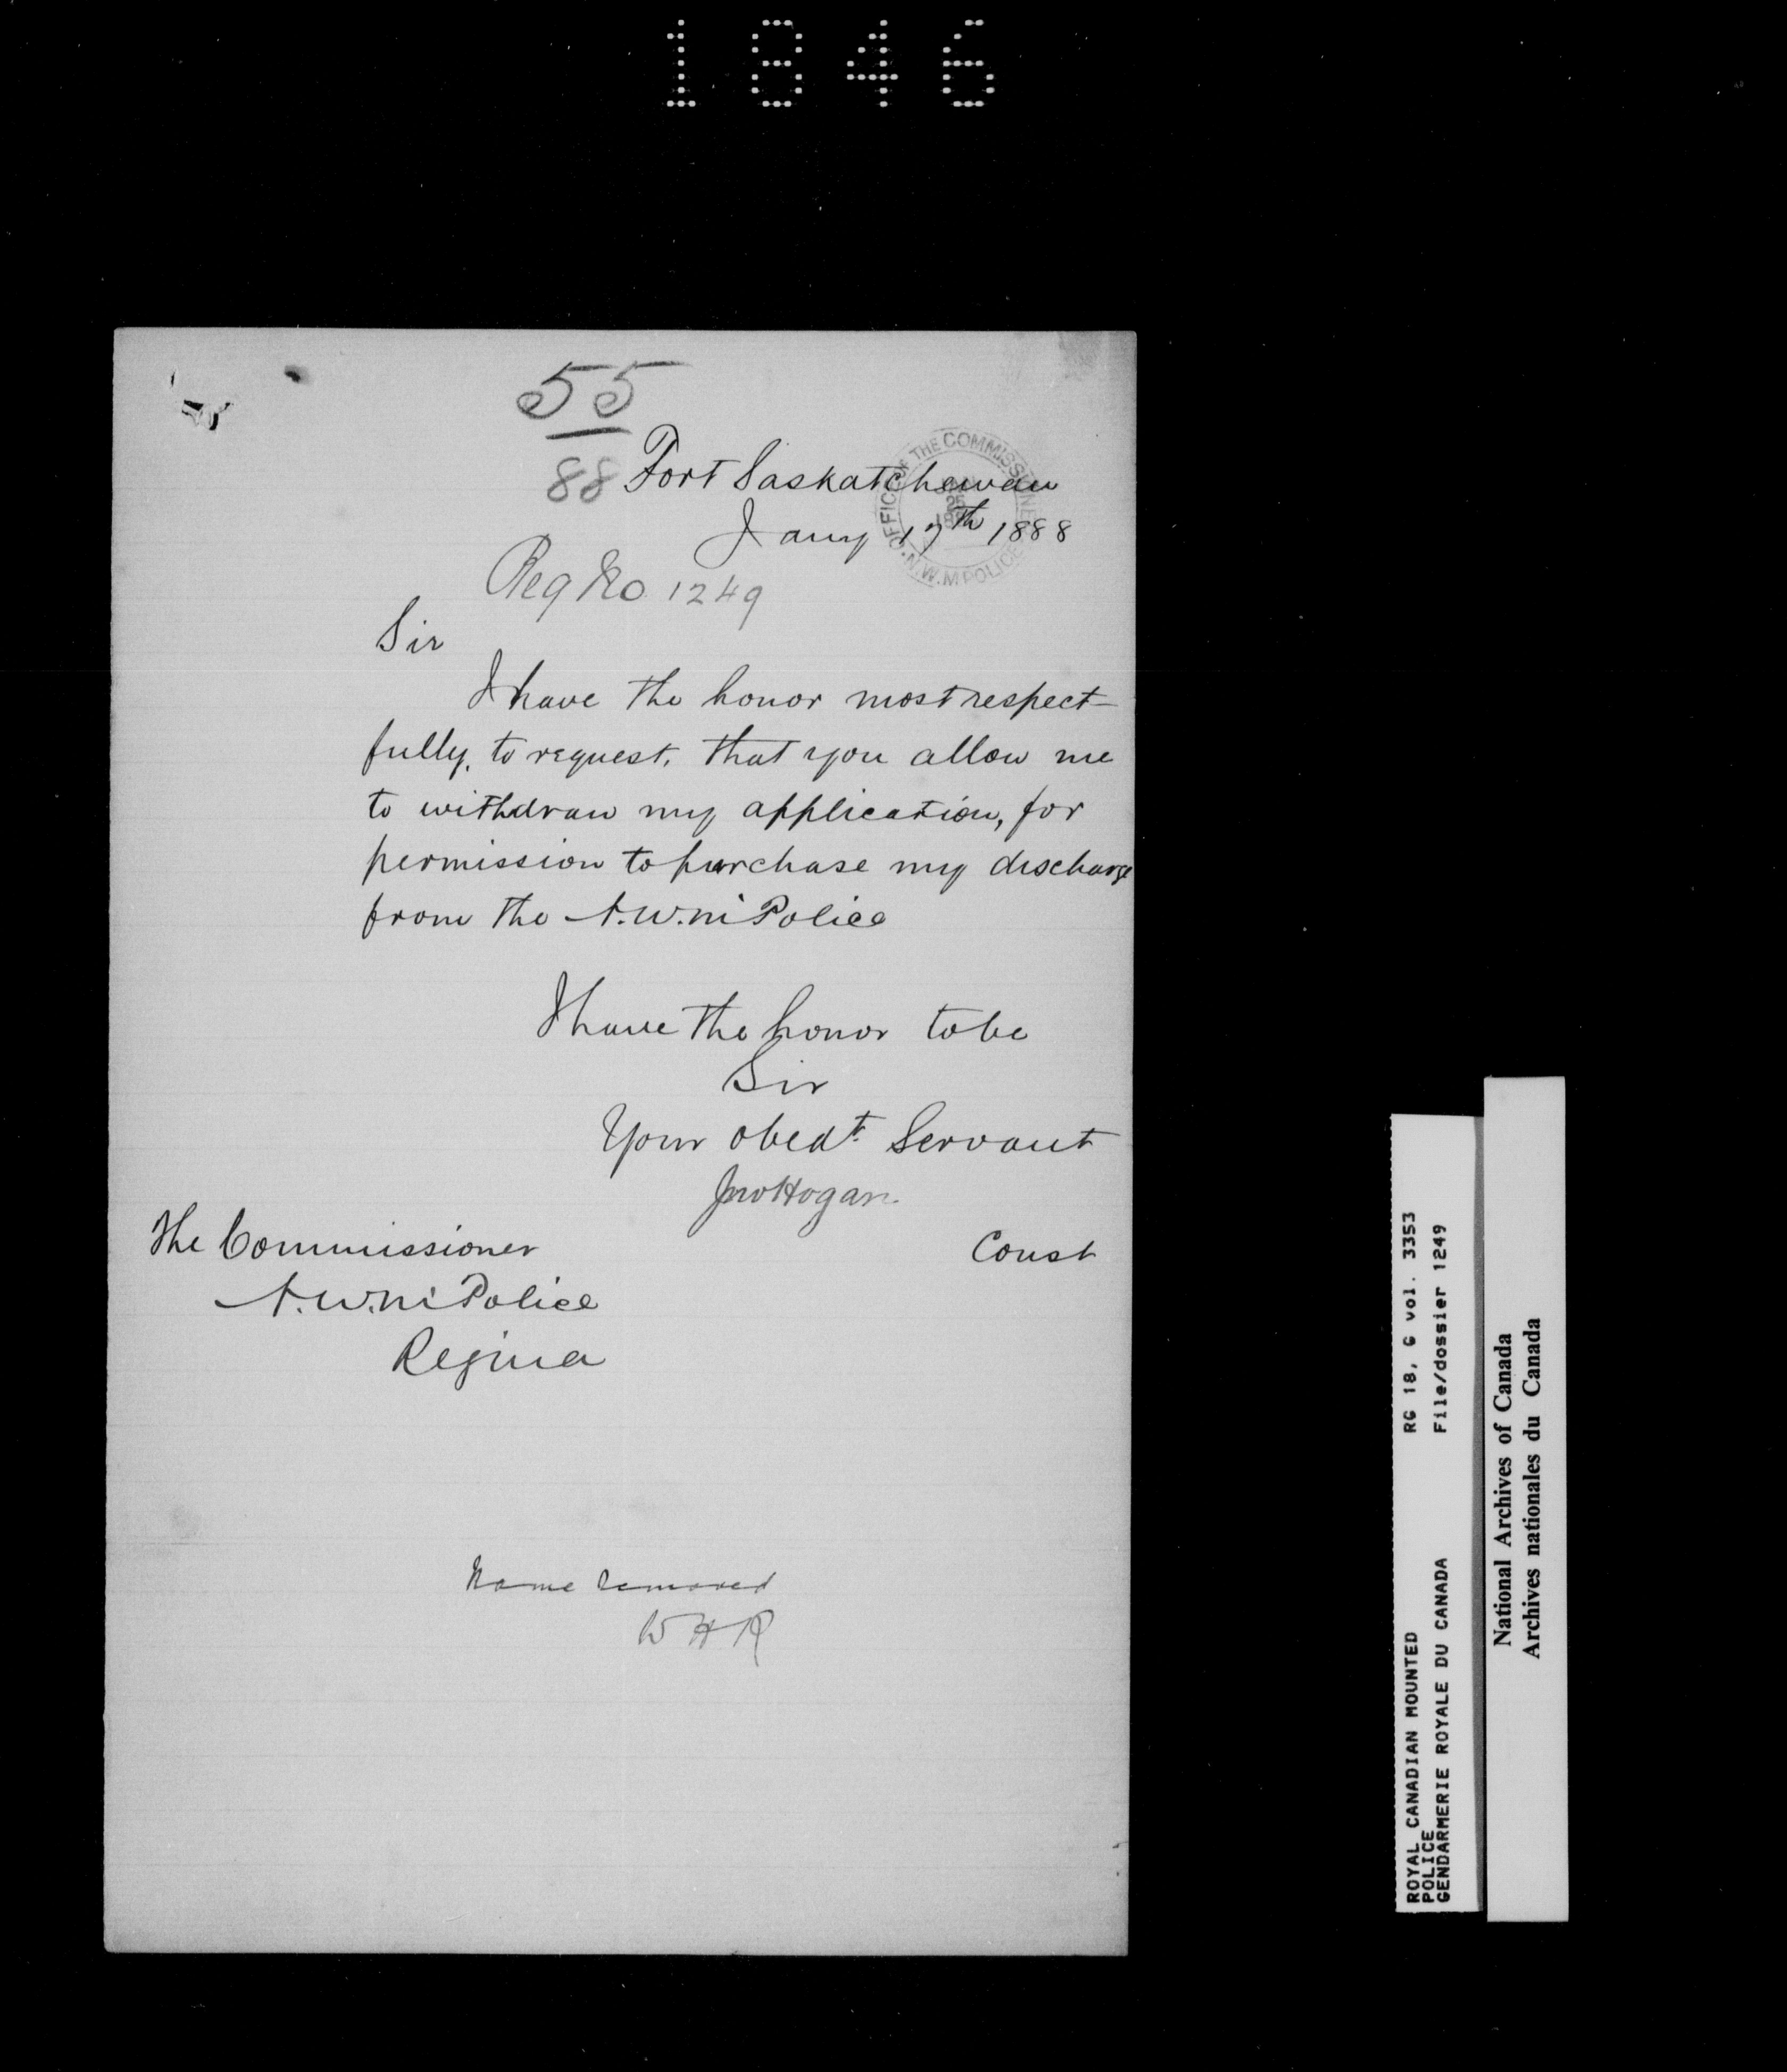 1846
55
88
Fort Saskatchewan
Jany 17th 1888
OFFICE OF THE COMMISSIONER
N.W.M POLICE
Reg No 1249
Sir
I have the honor most respect-
fully, to request, that you allow me
to withdraw my application, for
permission to purchase my discharge
from the N.W.M Police
I have the honor to be
Sir
Your obedt. Servant
Jno Hogan.
Const
The Commissioner
N.W.M Police
Regina
Name removed
W H R
ROYAL CANADIAN MOUNTED
POLICE
GENDARMERIE ROYALE DU CANADA
RG 18, G vol. 3353
File/dossier 1249
National Archives of Canada
Archives nationales du Canada